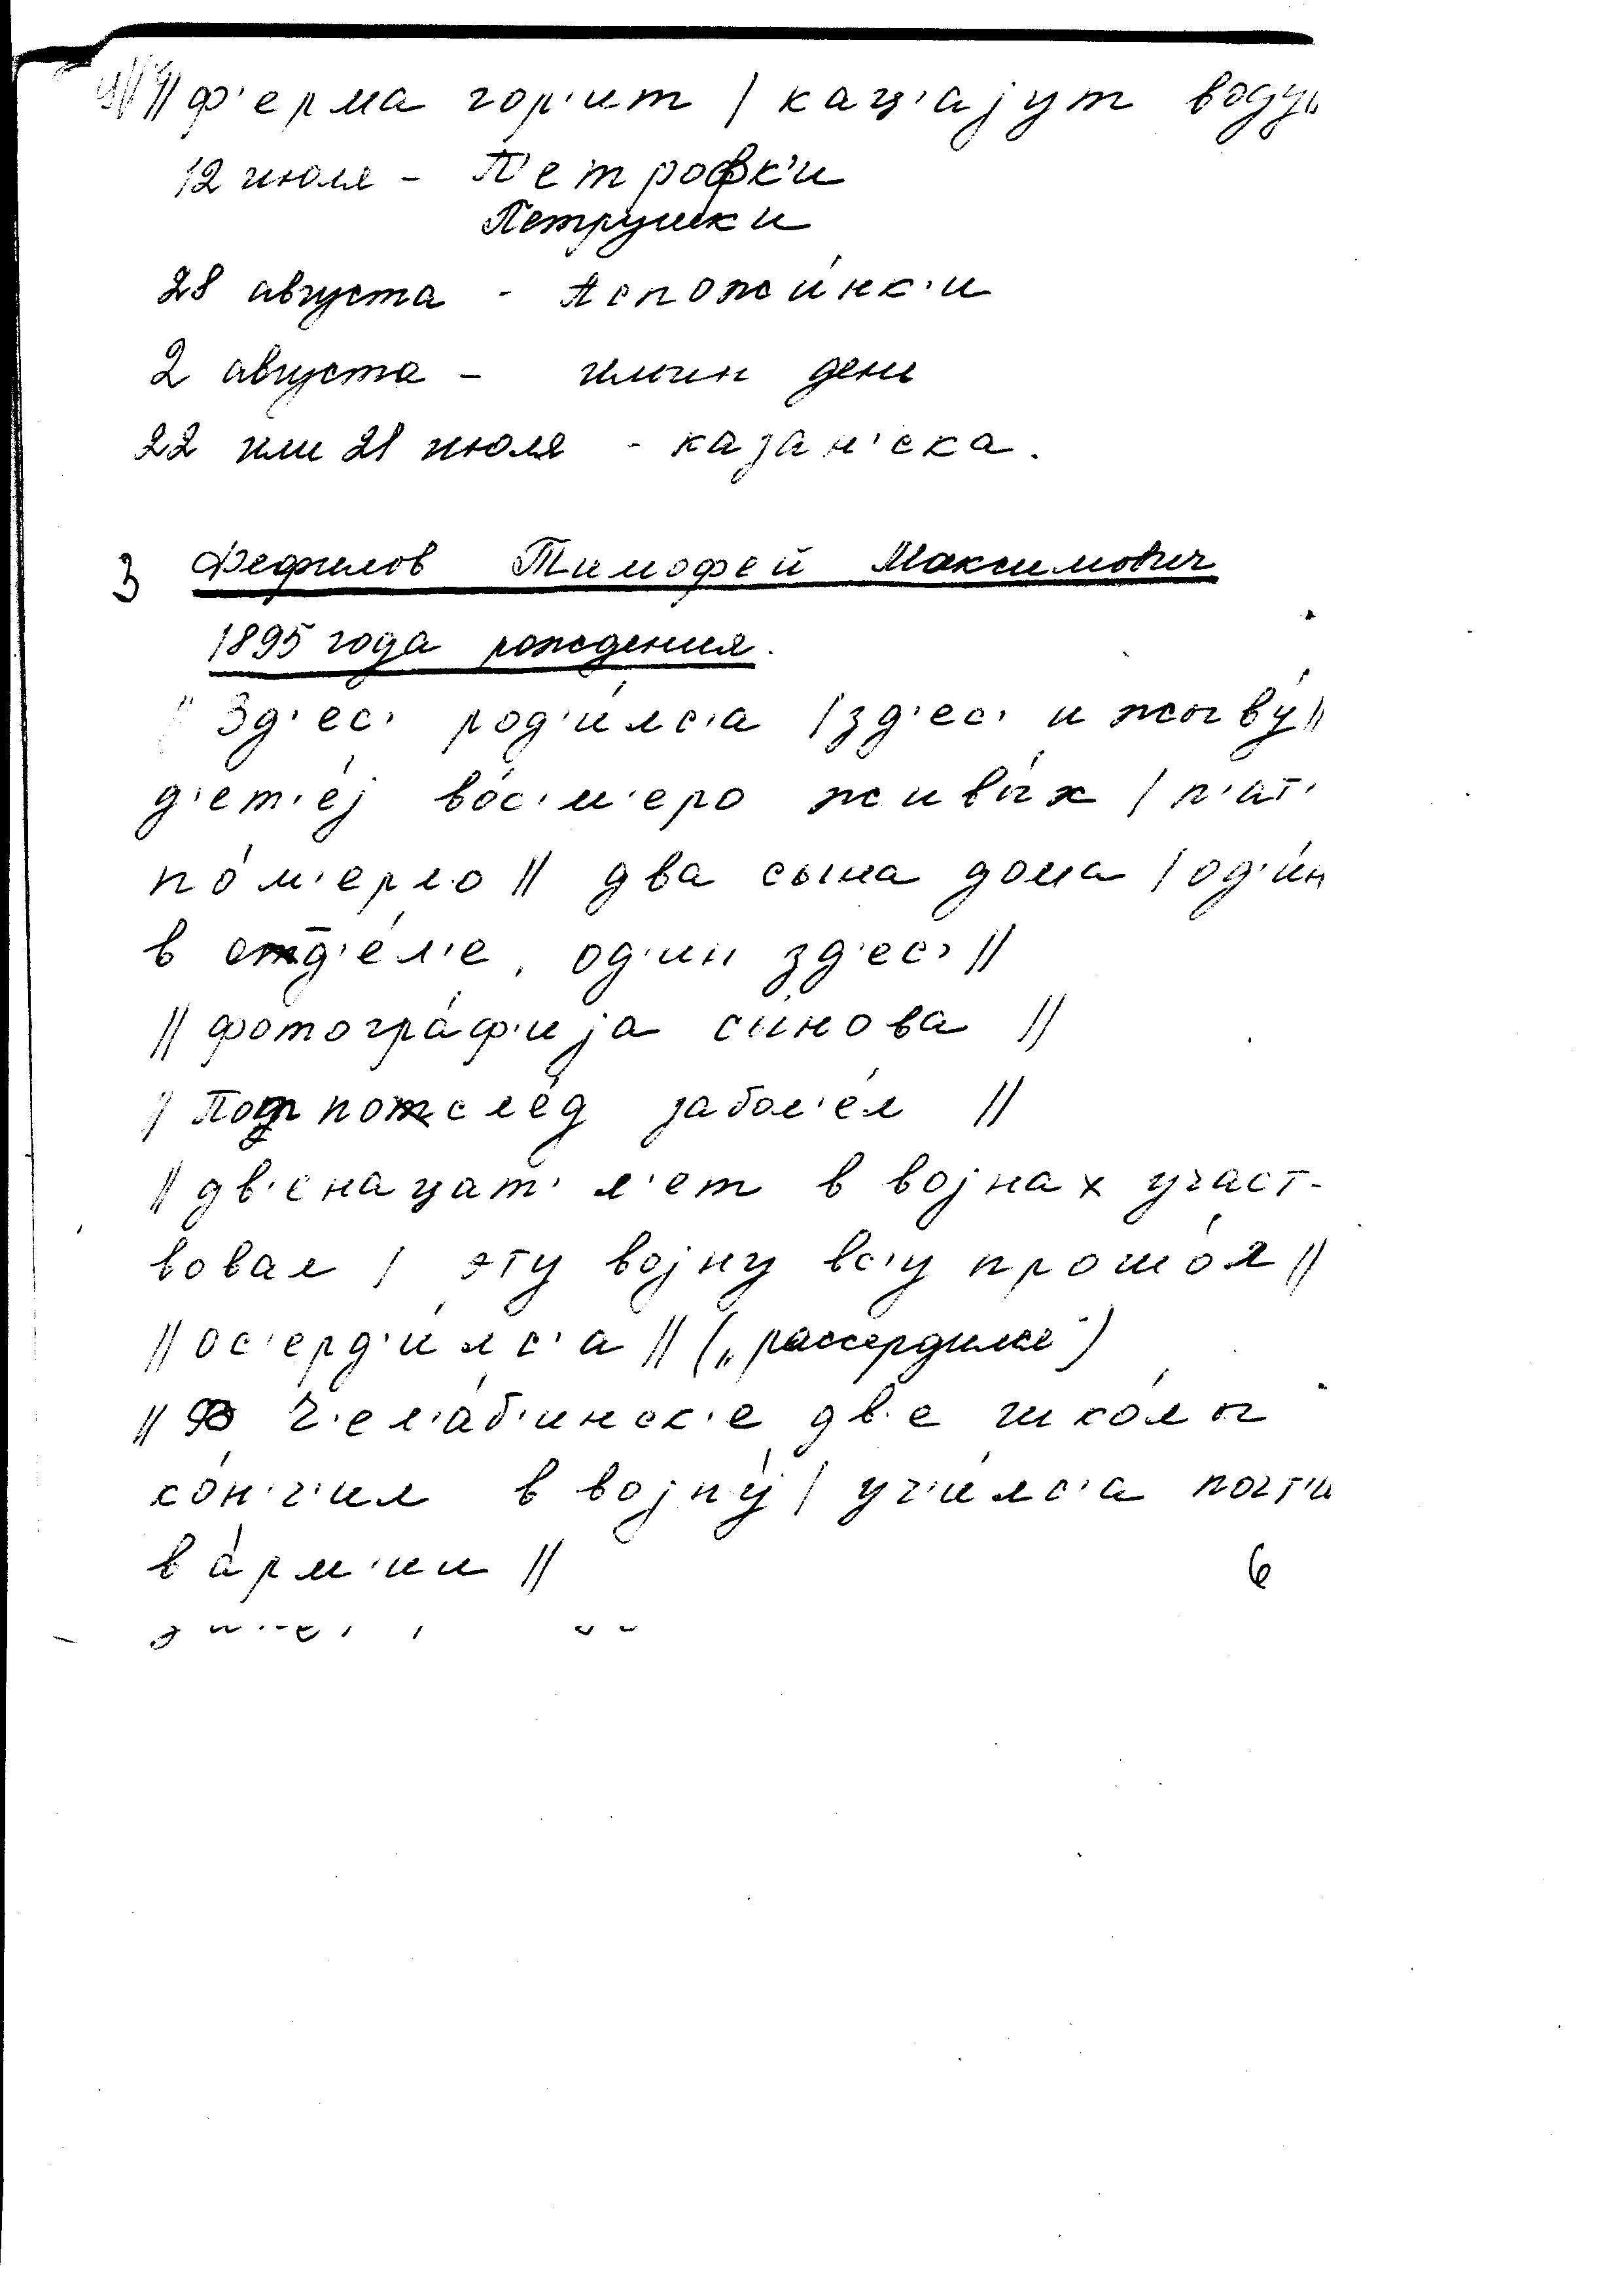 // ф'ерма гор'ит / кац'ајут воду
12 июля - П'етрофк'и
Петрушки
28 августа - Аспожи́нк'и
2 августа - ильин день
22 или 21 июля - казан'ска.
3 Фефилов Тимофей Максимович
1895 года рождения.
Зд'ес' род'и́лс'а / зд'ес' и жыву́ //
д'ет'е́ј во́с'м'еро живы́х / п'ат'
по́м'ерло // два сына дома / од'и́н
в отд'е́л'е, од'ин зд'ес' //
// фотогра́ф'ија сы́нова //
/ Под послед забол'е́л //
// дв'енацат' л'ет в војнах участ-
вовал / эту војну вс'у прошо́л //
// ос'ерд'и́лс'а // („рассердился")
// В Ч'ел'а́б'инск'е дв'е шко́лы
ко́н'ч'ил в војну́ / уч'и́лс'а почт'и
в а́рм'ии //
6